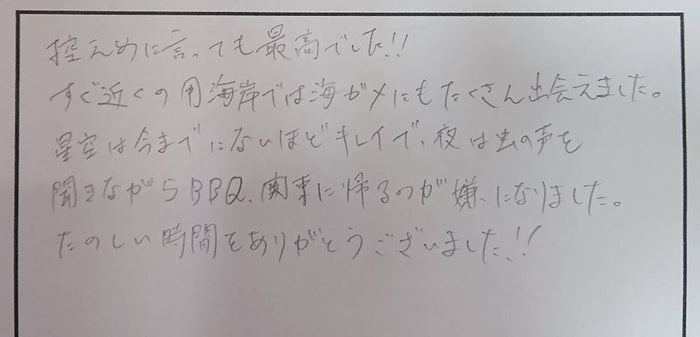 控えめに言っても最高でした!!
すぐ近くの用海岸では海ガメにもたくさん出会えました。
星空は今までにないほどキレイで、夜は虫の声を
聞きながらBBQ、関東に帰るのが嫌になりました。
たのしい時間をありがとうございました!!